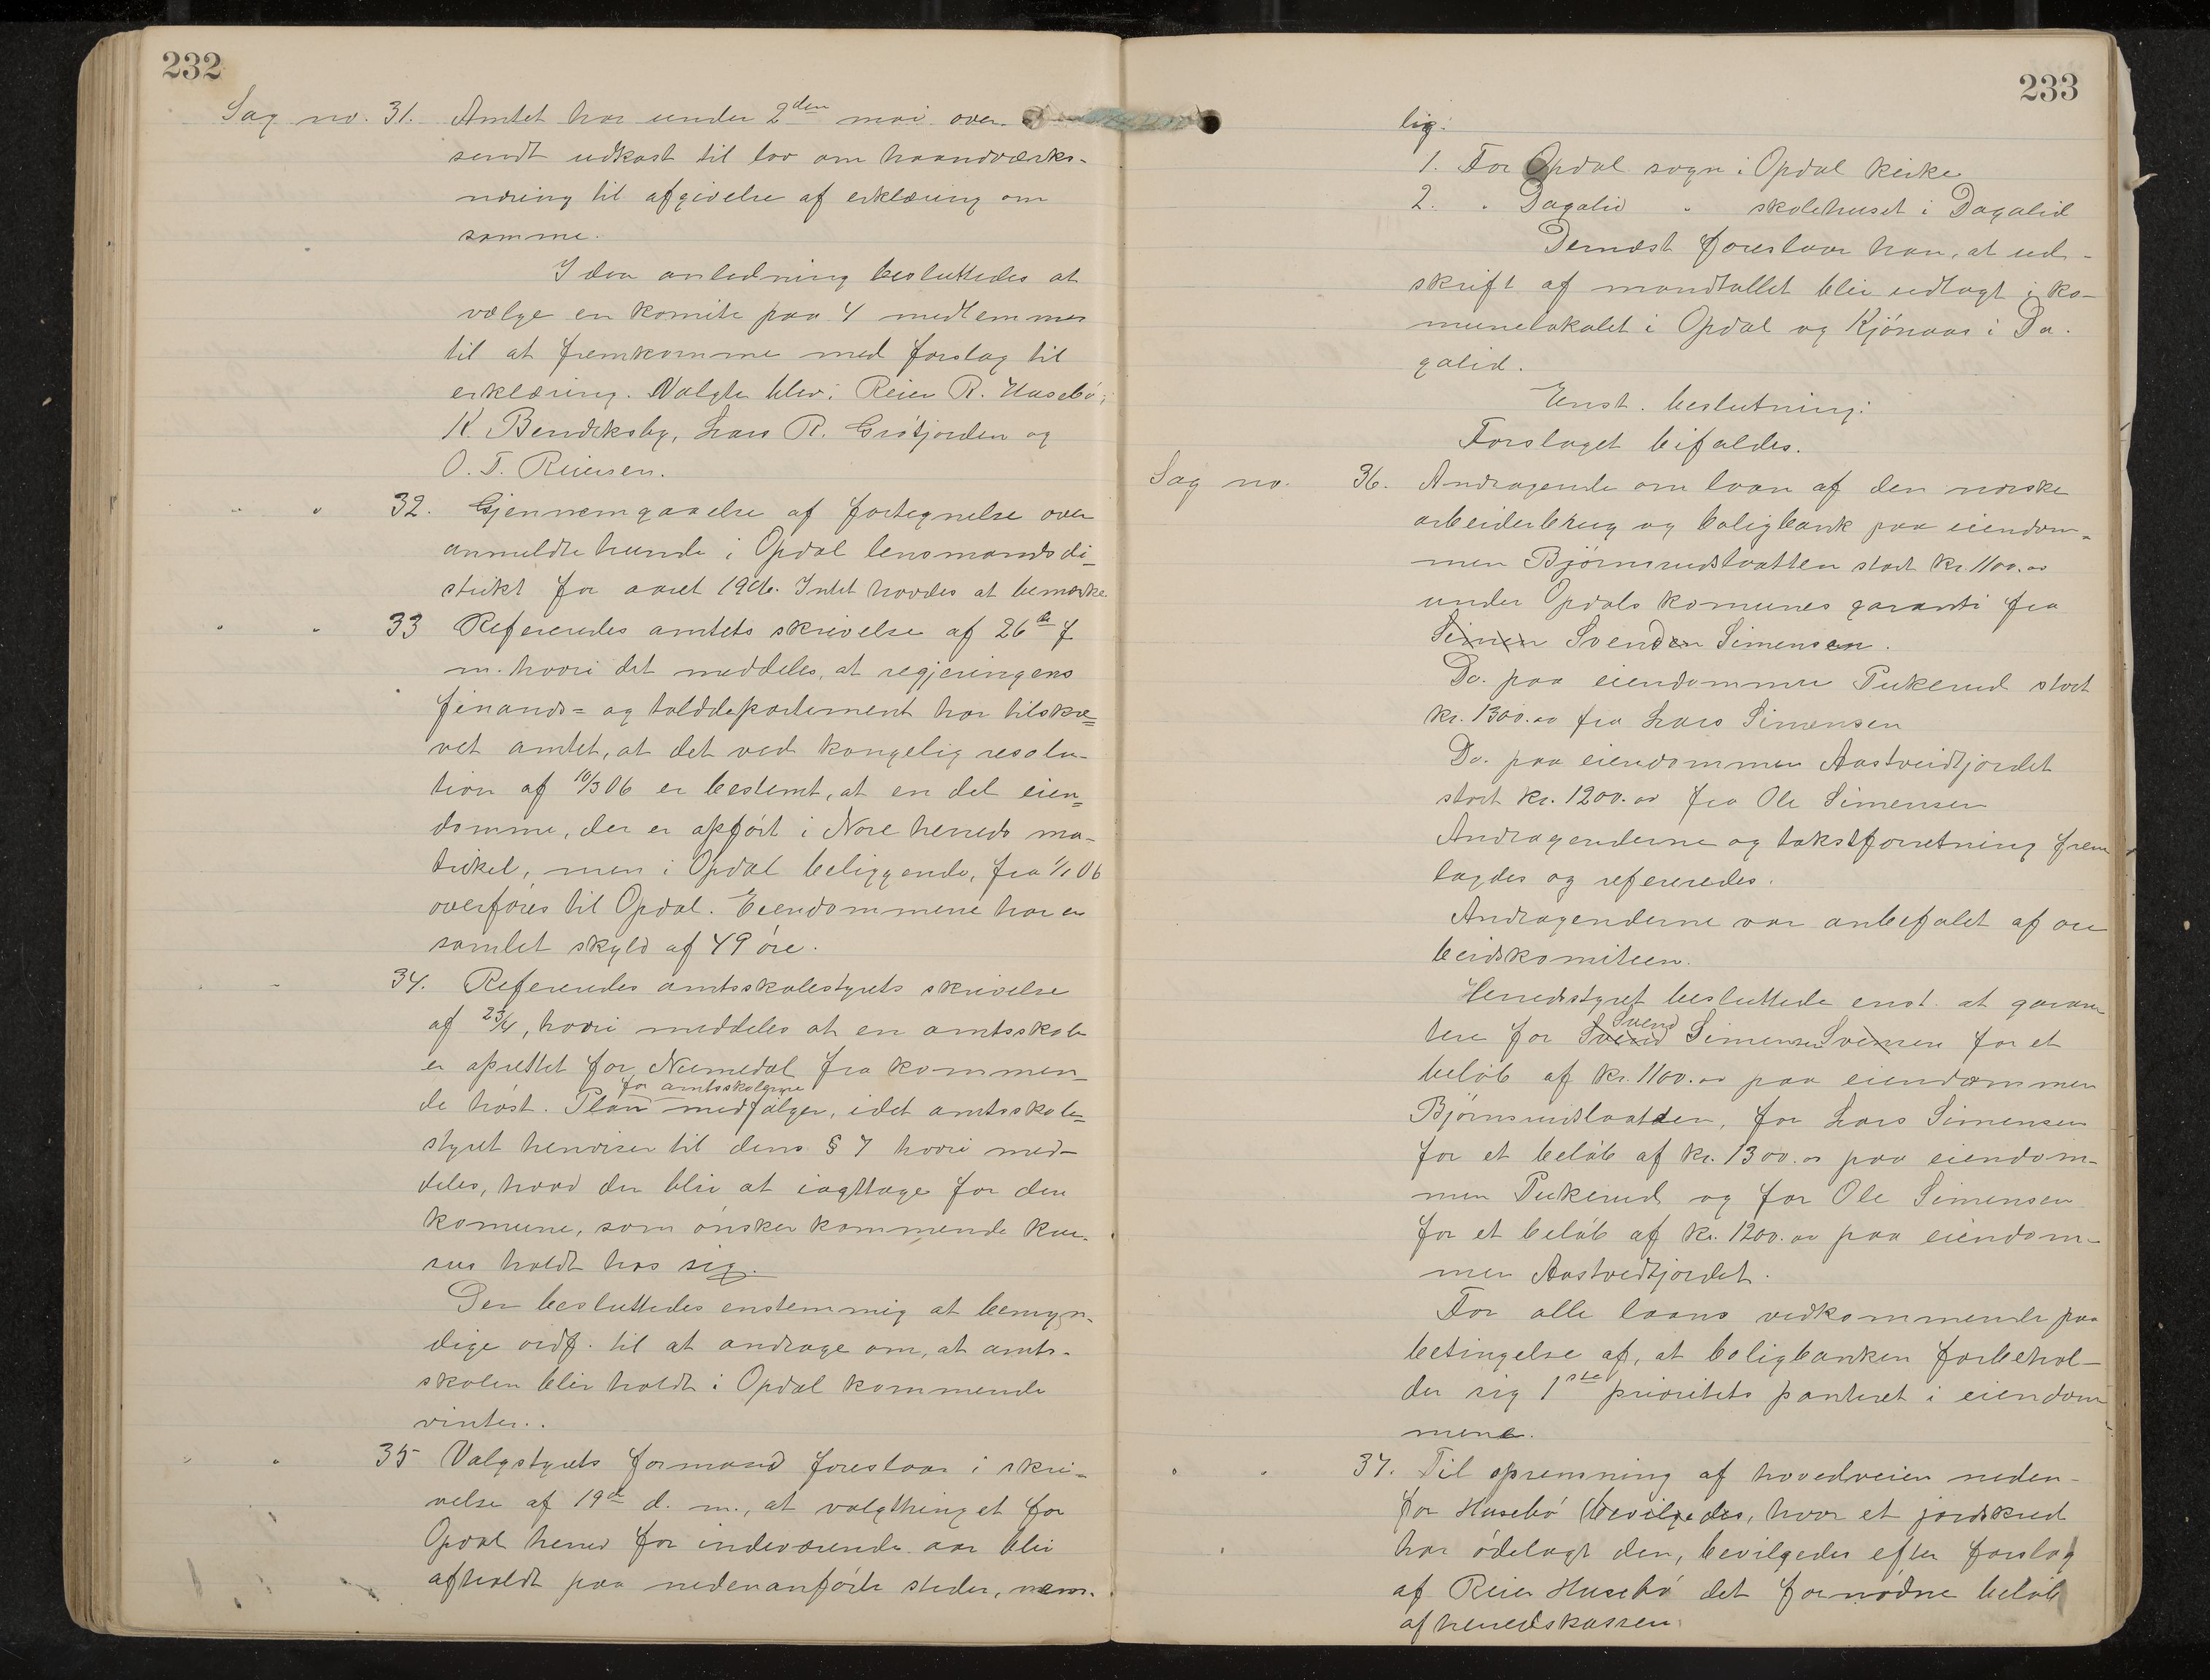 232
Sag no. 31. Amtet har under 2den mai over-
sendt udkast til lov om haandværks-
næring til afgivelse af erklæring om
samme.
I den anledning besluttedes at
vælge en komite paa 4 medlemmer
til at fremkomme med forslag til
erklæring. Valgte blev: Reier R. Husebö,
K. Bendiksby, Lars R. Grötjorden og
O. T. Reiersen.
" " 32. Gjennemgaaelse af fortegnelse over
anmeldte hunde i Opdal lensmandsdi-
strikt for aaret 1906. Intet havdes at bemærke
" " 33 Refereredes amtets skrivelse af 26de f.
m. hvori det meddeles, at regjeringens
finands= og tolddepartement har tilskre=
vet amtet, at det ved kongelig resolu-
tion af 10/3 06 er bestemt, at en del eien=
domme, der er opfört i Nore herreds ma-
trikel, men i Opdal beliggende, fra 1/1 06
overföres til Opdal. Eiendommene har en
samlet skyld af 49 öre.
" " 34. Refereredes amtsskolestyrets skrivelse
af 23/4, hvori meddeles at en amtsskole
er oprettet for Numedal fra kommen-
for amtsskolerne
de höst. Plan medfölger, idet amtsskole=
styret henviser til dens § 7 hvori med-
deles, hvad der blir at iagttage for den
komune, som önsker kommende kur-
sus holdt hos sig.
Der besluttedes enstemmig at bemyn-
dige ordf. til at andrage om, at amts-
skolen blir holdt i Opdal kommende
vinter..
" " 35 Valgstyrets formand foreslaar i skri-
velse af 19de d. m., at valgthinget for
Opdal herred for indeværende aar blir
afholdt paa nedenanförte steder, nem-
233
lig:
1. For Opdal sogn i Opdal kirke
2. " Dagalid " skolehuset i Dagalid
Dernæst foreslaar han, at ud-
skrift af mandtallet blir udlagt i ko-
munelokalet i Opdal og Kjönaas i Da-
galid.
Enst. beslutning:
Forslaget bifaldes.
Sag no. 36. Andragende om laan af den norske
arbeiderbrug og boligbank paa eiendom-
men Björnsrudslaatten stort kr. 1100.00
under Opdals komunes garanti fra
Simen Svenden Simensen.
Do. paa eiendommen Pukerud stort
kr. 1300.00 fra Lars Simensen
Do. paa eiendommen Aastveidtjordet
stort kr. 1200.00 fra Ole Simensen
Andragenderne og takstforretning frem
lagdes og refereredes.
Andragenderne var anbefalet af ar
beidskomiteen.
Herredsstyret besluttede enst. at garan
Svend
tere for Svend Simensen Svensen for et
belöb af kr. 1100.00 paa eiendommen
Björnsrudslaatten, for Lars Simensen
for et belöb af kr. 1300.00 paa eiendom-
men Pukerud og for Ole Simensen
for et belöb af kr. 1200.00 paa eiendom-
men Aastvedtjordet.
For alle laans vedkommende paa
betingelse af, at boligbanken forbehol-
der sig 1ste prioritets panteret i eiendom
mene.
" " 37. Til oprømning af hovedveien neden-
for Husebö bevilgedes, hvor et jordskred
har ödelagt den, bevilgedes efter forslag
af Reier Husebö det fornödne belöb
af herredskassen.